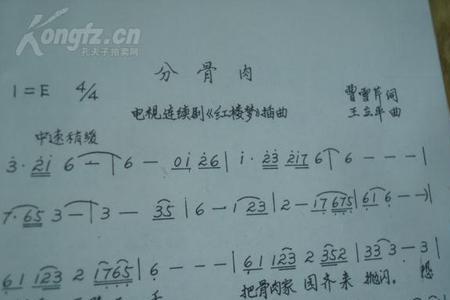 Kongfz.cn
孔夫子拍卖网
分骨肉
1=E 4/4
电视连续剧《红楼梦》插曲
曹雪芹词
王立平曲
中速稍缓
3· 21 6 — | 6 — 01 26 | 1· 23 217 6 | 6 - - - |
7· 65 3 — | 3 — 35 | 6 — 1 23 | 2 — 17 675 | 61 6 - - |
61 123 2 1765 | 6 - - - | 61 123 2 352 | 33 3 - 3 |
把骨肉家园齐来抛闪。恐